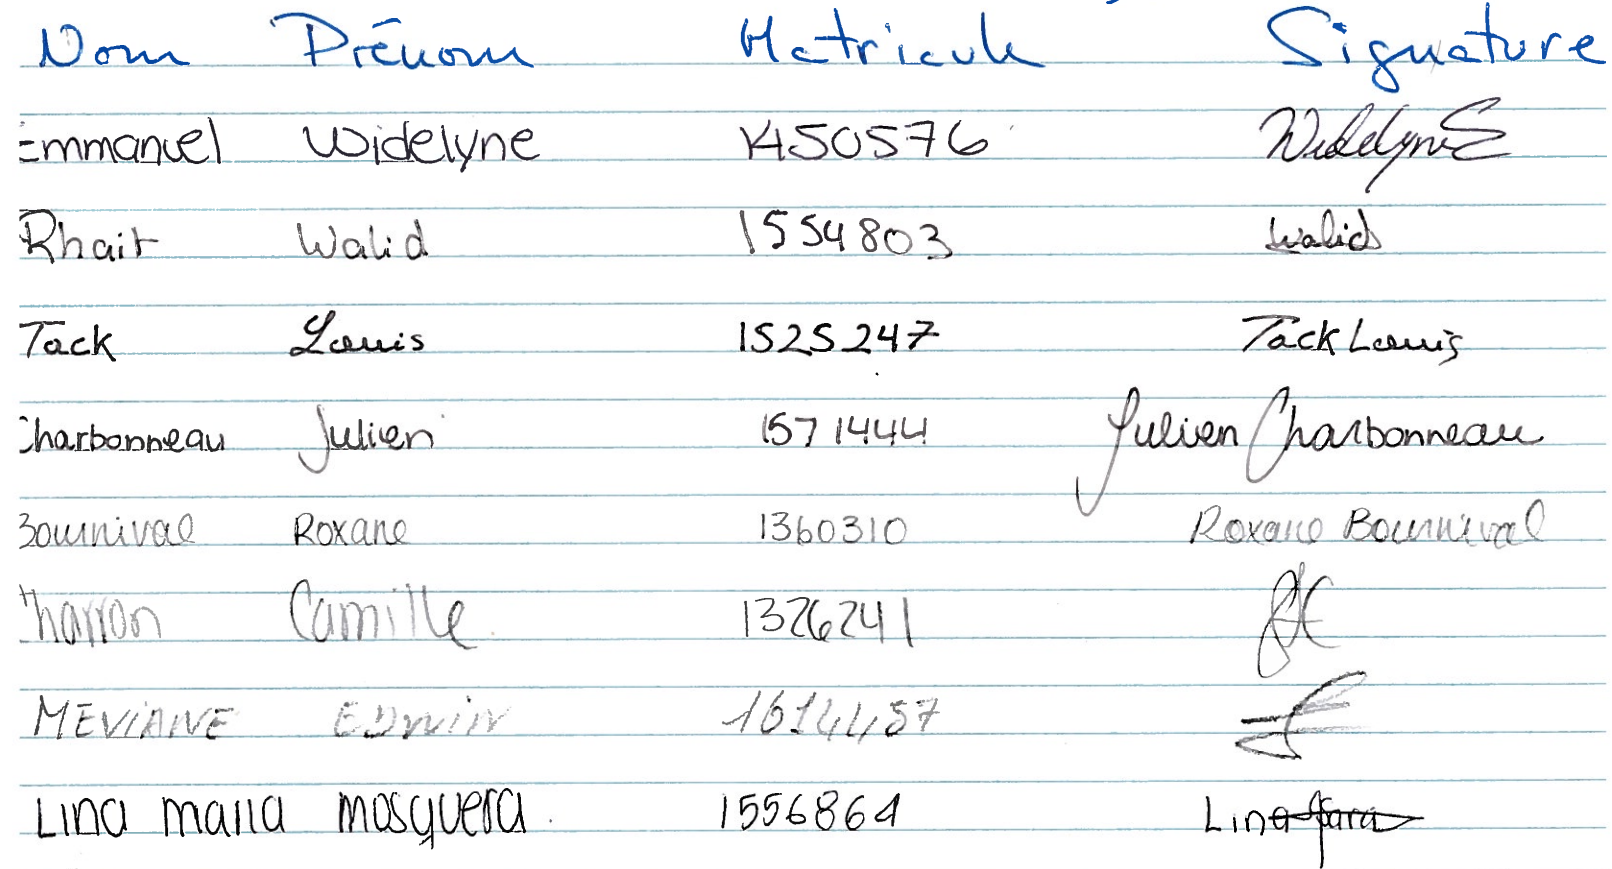 Nom Prénom Matricule Signature
Emmanuel Widelyne 1450576 Widelyne E
Rhait Walid 1554803 Walid
Tack Louis 1525247 Tack Louis
Charbonneau Julien 1571444 Julien Charbonneau
Bournival Roxane 1360310 Roxane Bournival
Charron Camille 1326241
MEVIANE EDWIN 1614457
Lina maria mosquera 1556864 Lina